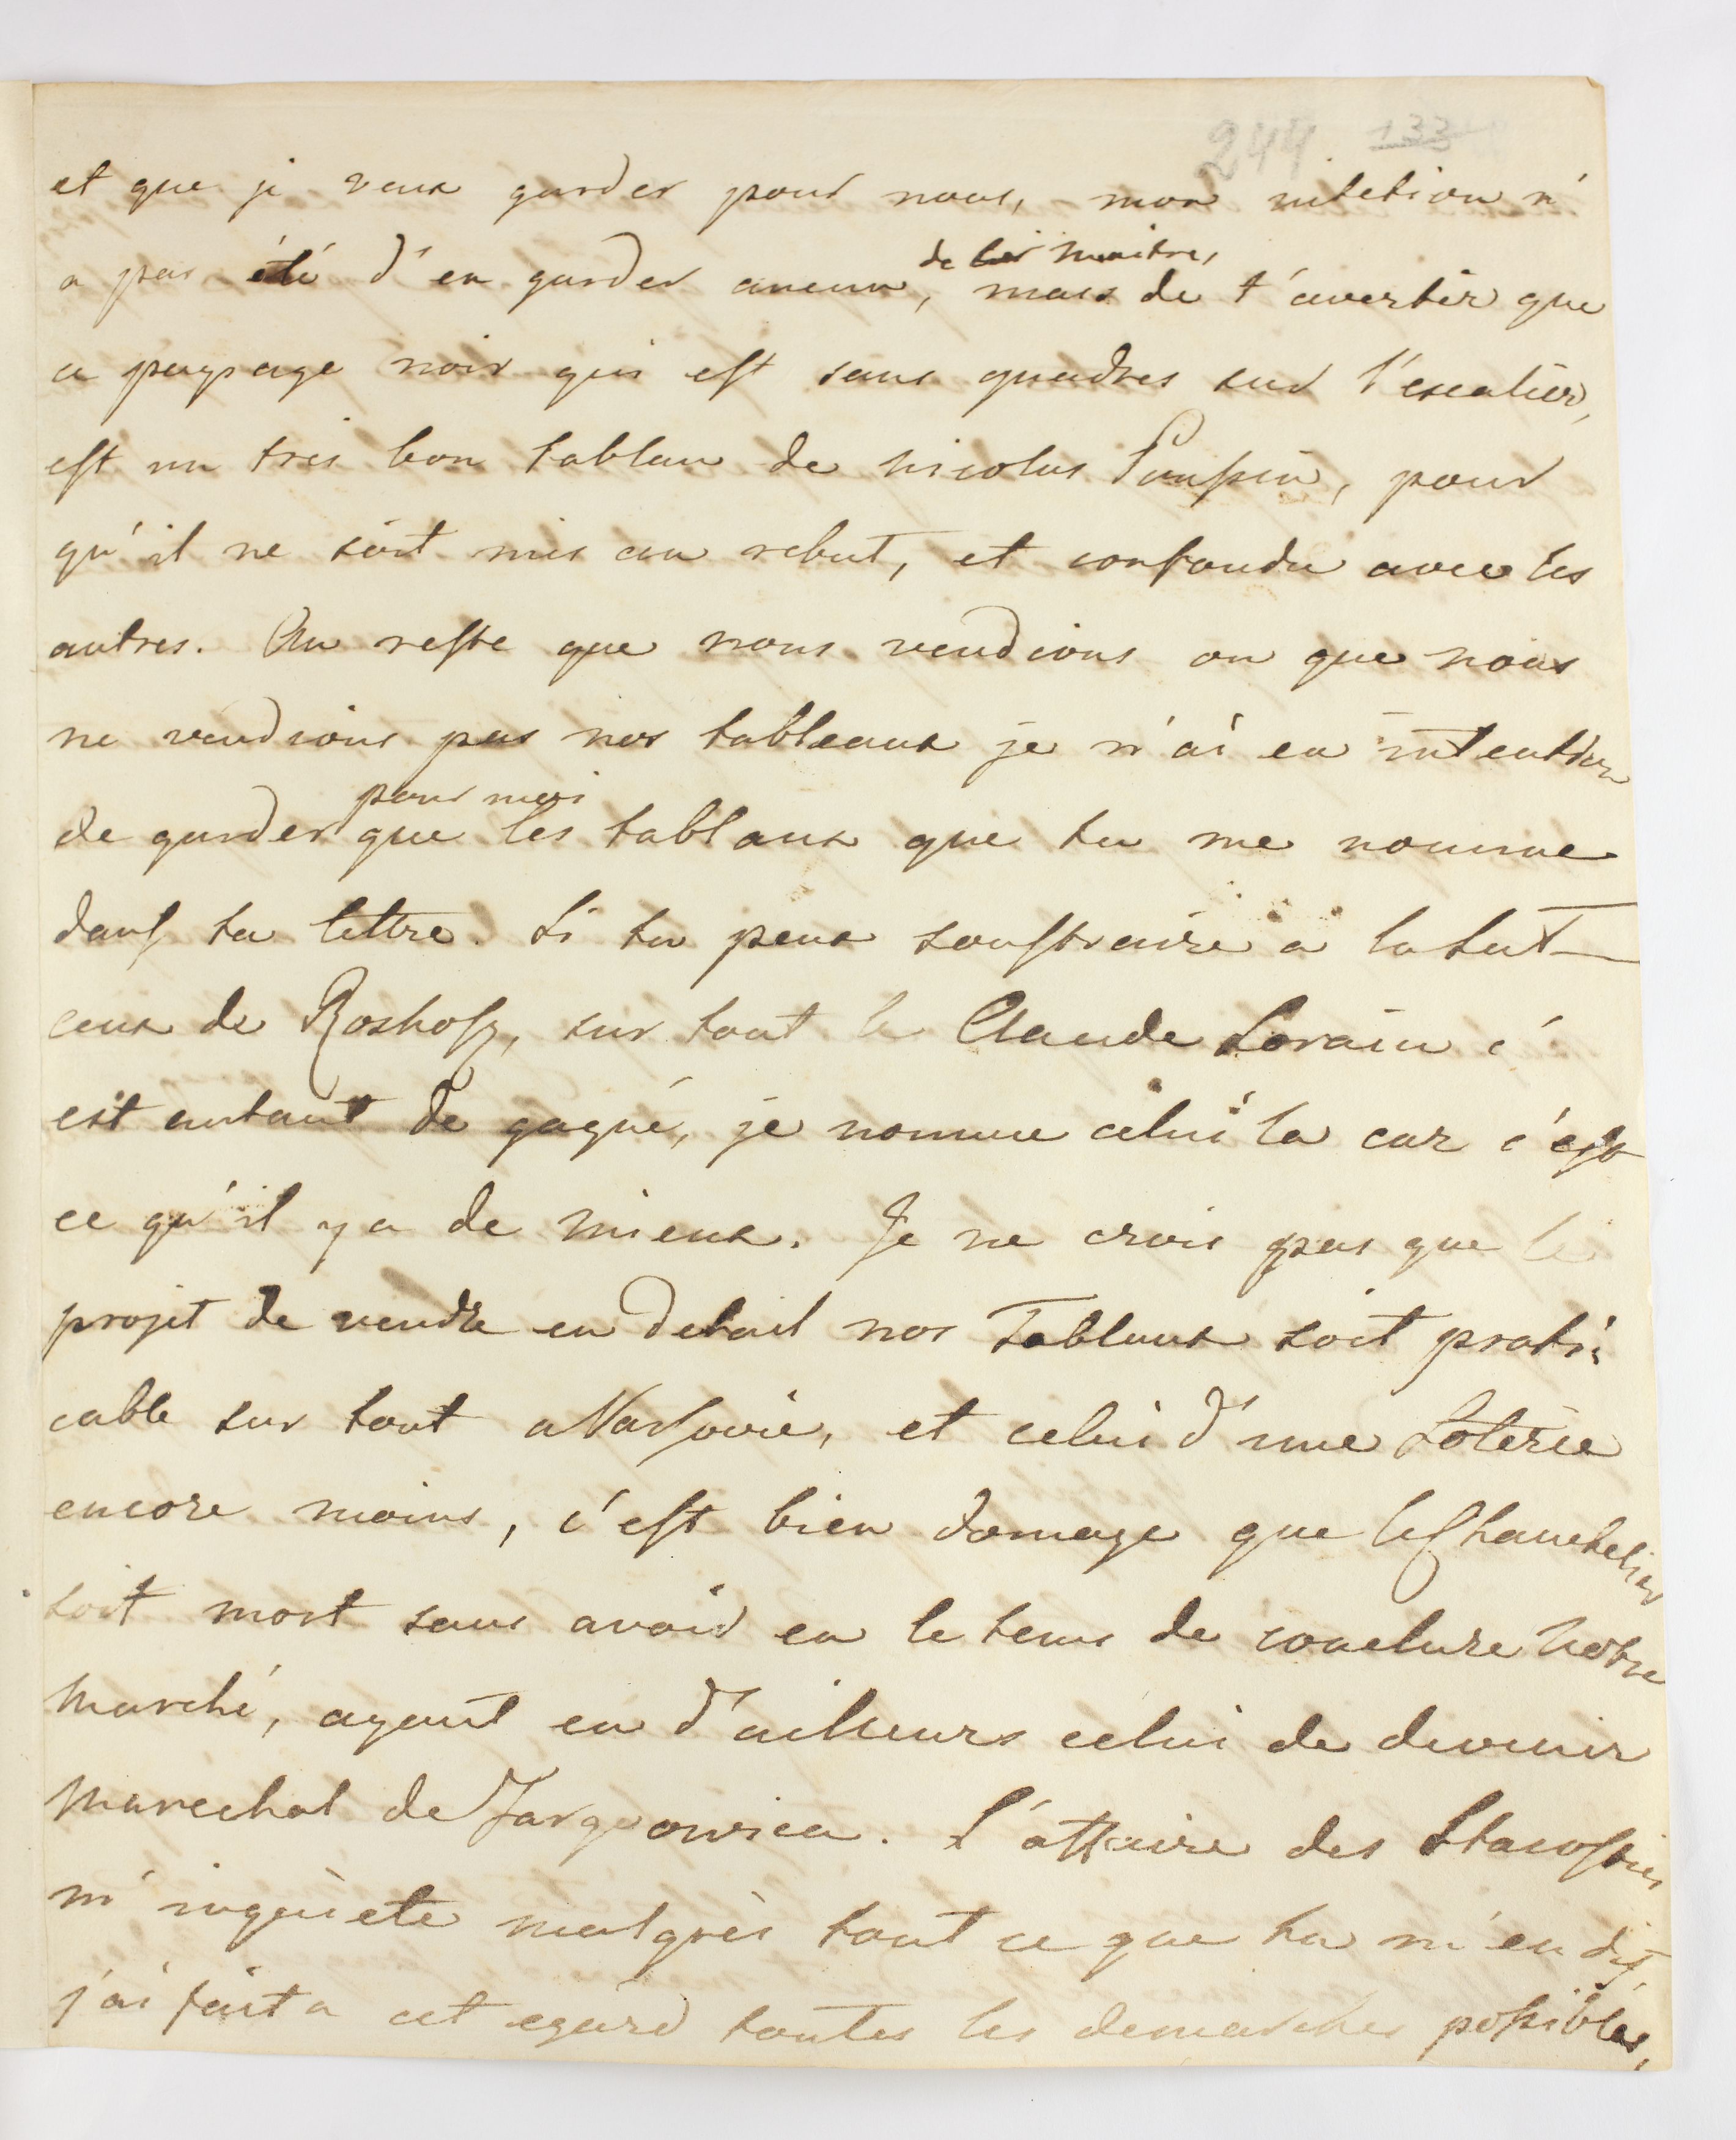 244 133
et que je veux garder pour nous, mon intetion n'
a pas été d'en garder aucun,
de ces maitres,
mais de t'avertir que
ce paysage noir qui est sans quadres sur l'escalier,
est un tres bon tablau de nicolas Poussin, pour
qu'il ne soit mis au rebut, et confondu avec les
autres. Au reste que nous vendions ou que nous
ne vendions pas nos tableaux je n'ai eu intention
pour moi
de garder que les tablaux que tu me nomme
dans ta lettre. Si tu peux soustraire a la
ceux de sur tout le Claude Lorain c'
est autant de gagné, je nomme celui la car c'est
ce qu'il y a de mieux. Je ne crois pas que le
projet de vendre en detail nos Tablaux soit prati:
cable sur tout a Varsovie, et celui d'une Loterie
encore moins, c'est bien domage que le Chanchelier
soit mort sans avoir eu le tems de conclure notre
marché, ayant eu d'ailleurs celui de devenir
marechal de Targowica. L'affaire des Starosties
m'inquiete malgrès tout ce que tu m'en dis,
j'ai fait a cet egard toutes les demarches possibles,